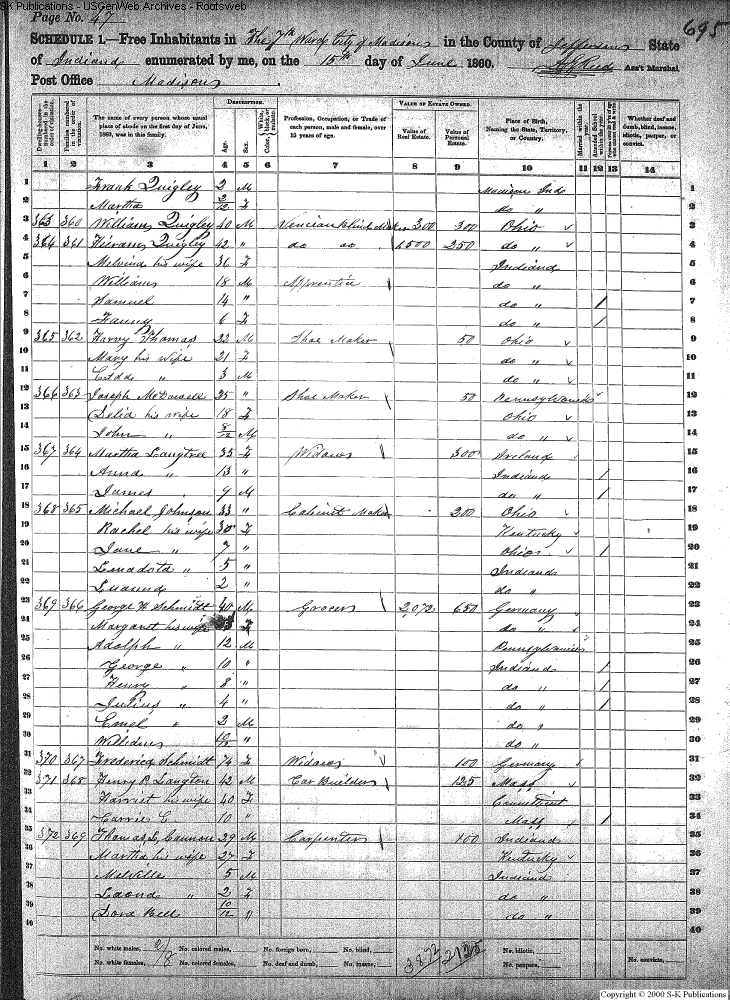 S-K Publications - USGenWeb Archives - Rootsweb
Page No. 47
695
SCHEDULE 1.—Free Inhabitants in The 7th Ward City of Madison in the County of Jefferson State
of Indiana enumerated by me, on the 15th day of June 1860. Ass't Marshal
Post Office Madison
Dwelling-houses—numbered in the order of visitation.
Families numbered in the order of visitation.
The name of every person whose usual place of abode on the first day of June, 1860, was in this family.
DESCRIPTION.
Age.
Sex.
Color, White, black, or mulatto.
Profession, Occupation, or Trade of each person, male and female, over 15 years of age.
VALUE OF ESTATE OWNED.
Value of Real Estate.
Value of Personal Estate.
Place of Birth, Naming the State, Territory, or Country.
Married within the year.
Attended School within the year.
Whether deaf and dumb, blind, insane, idiotic, pauper, or convict.
1 2 3 4 5 6 7 8 9 10 11 12 13 14
1 Frank Quigley 2 M Madison Ind 1
2 Martha 2/12 F do " 2
3 363 360 William Quigley 40 M Venecian Blind Maker 300 300 Ohio 3
4 364 361 Hieram Quigley 42 " do do 1,500 250 do " 4
5 Melvina his wife 36 F Indiana 5
6 William 18 M Apprentice do " 6
7 Samuel 14 " do " / 7
8 Fanny 6 F do " / 8
9 365 362 Harvy Thomas 22 M Shoe Maker 50 Ohio 9
10 Mary his wife 21 F do " 10
11 3 M do " 11
12 366 363 Joseph McDowell 25 " Shoe Maker 50 Pennsylvania 12
13 Delia his wife 18 F Ohio 13
14 John " 8/12 M do " 14
15 367 364 Martha Langtree 35 F Widow 300 Ireland 15
16 Anna " 13 " Indiana / 16
17 James 9 M do " / 17
18 368 365 Michael Johnson 33 " Cabinet Maker 200 Ohio 18
19 Rachel his wife 30 F Kentucky 19
20 Jane " 7 " Ohio / 20
21 " 5 " Indiana 21
22 2 " do " 22
23 369 366 George W Schmidt 40 M Grocer 2,072 650 Germany 23
24 Margaret his wife F do " 24
25 Adolph " 12 M Pennsylvania 25
26 George " 10 " Indiana / 26
27 Henry " 8 " do " / 27
28 Julius " 4 " do " / 28
29 Emel " 2 M do " 29
30 William 10/12 " do " 30
31 370 367 Frederica Schmidt 74 F Widow 100 Germany 31
32 371 368 Henry P. Langton 42 M Car Builder 125 Mass 32
33 Harriet his wife 40 F Connecticut 33
34 Carrie E 10 " Mass / 34
35 372 369 Thomas L. Cannon 29 M Carpenter 100 Indiana 35
36 Martha his wife 27 F Kentucky 36
37 Melville 5 M Indiana 37
38 " 2 F do " 38
39 Dora Bell 10/12 " do " 39
40 40
No. white males, No. colored males, No. foreign born, No. blind, No. idiotic,
No. white females, 18 No. colored females, No. deaf and dumb, No. insane, No. paupers, No. convicts,
3872 2125
Copyright © 2000 S-K Publications